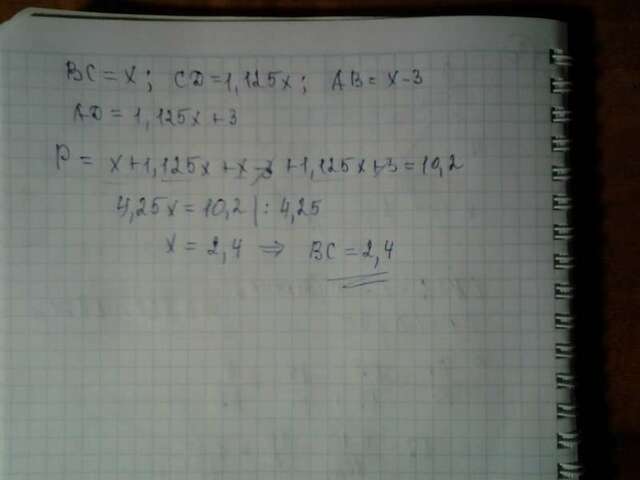 BC = x; CD = 1,125x; AB = x - 3
AD = 1,125x + 3
P = x + 1,125x + x - 3 + 1,125x + 3 = 10,2
4,25x = 10,2 | : 4,25
x = 2,4 ⇒ BC = 2,4